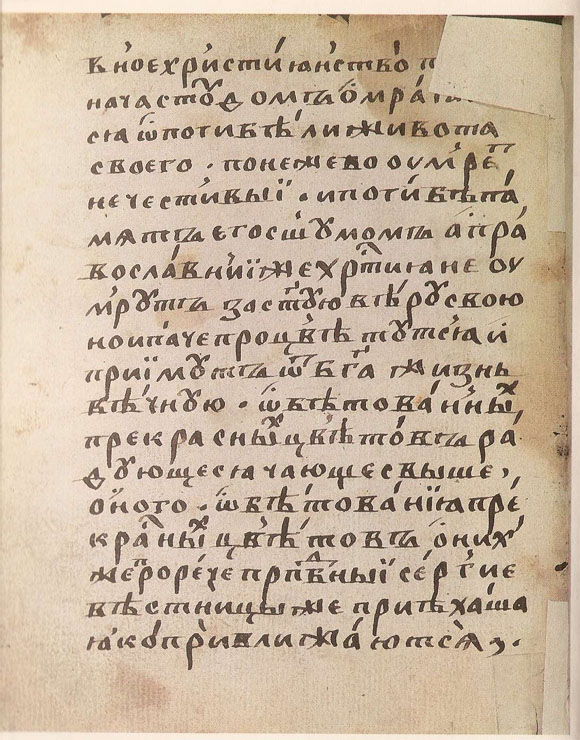 вно́е хри́стїꙗ́нство п
нача сто́ꙋ до́мъ ѡ҆мра
сѧ ѿ погибѣ́ли живота
своего . понеже во оу҆мре́т
нечести́выї . и погибѣ па́
мѧть его с шꙋмомъ а҆ пра́
восла́внїи же хрⷭ҇тиꙗне оу
мрꙋть за стꙋ́ю вѣ́рꙋ свою
но и па́че процвѣтꙋтсѧ и
прїи́мꙋтъ ѿ бг҃а жизнь
вѣчнꙋю . ѡ҆бѣтова́нны́ⷯ
прекрасныⷯ цвѣто́въ ра́
дꙋющесѧ чающе свыше ,
о҆́ного . ѡ҆бѣтова́нїѧ пре
кра́ⷭныⷯ цвѣ́товъ о҆ ниⷯ
же прорече прпⷣбныї се́ргїе
вѣстницы же прїѣхаша
ꙗко приближа́ютсѧ .